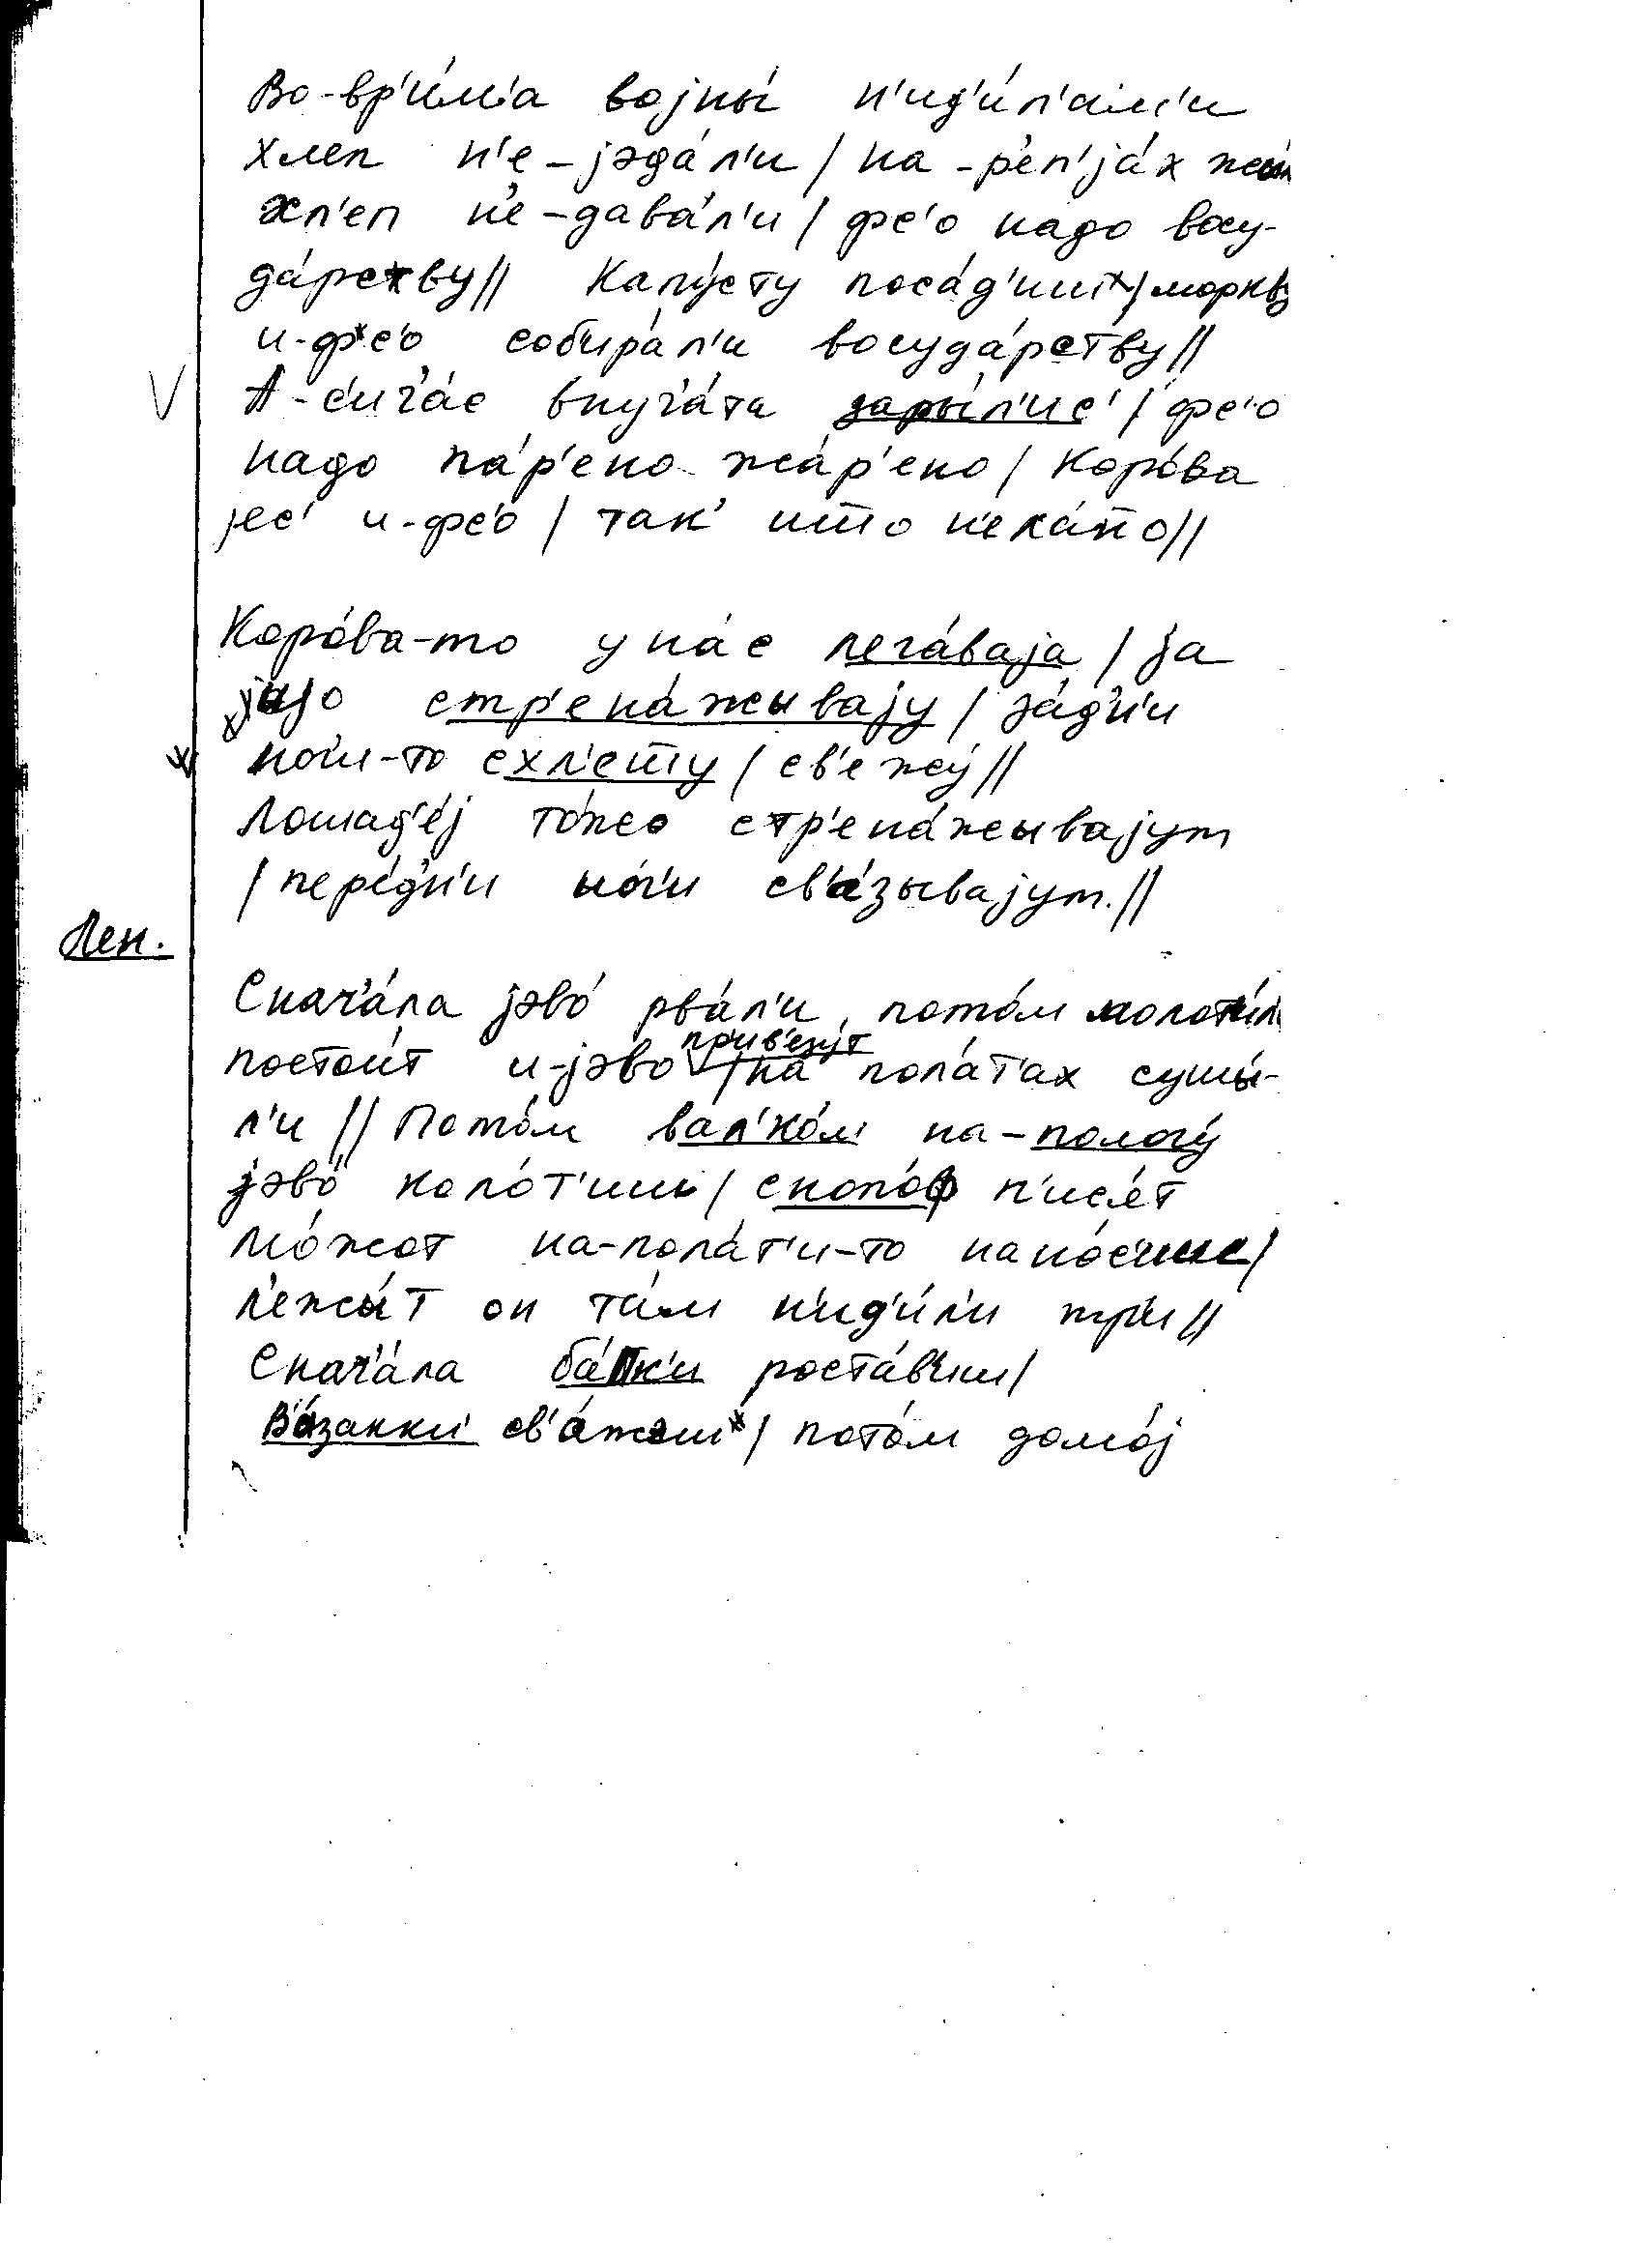 Во-вр'и́м'а војны́ н'ид'и́л'ам'и
хлеп н'е-јэда́л'и / на-р'еп'ја́х жы́л'и
хл'еп н'е-дава́л'и / фс'о надо восу-
да́рству // Капу́сту поса́д'иш / моркву
и-фс'о собира́л'и восуда́рству //
А-с'ич'а́с внуч'а́та зары́л'ис' / фс'о
надо па́р'ено жа́р'ено / Коро́ва
јес' и-фс'о / так што н'ека́то //
Коро́ва-то у на́с лега́ваја / ја
јијо стр'ена́жывају / за́дн'и
но́г'и-то схл'ешшу / св'ежу́ //
Лошад'е́ј то́жо стр'ена́жывајут
/ пере́дн'и но́г'и св'а́зывајут //
Лен.
Снач'а́ла јэво́ рва́л'и, пото́м молот'и́л'и
постои́т и-јэво прив'езу́т / на пола́т'ах сушы́-
л'и // Пото́м вал'ко́м на-пологу́
јэво́ коло́т'иш / снопо́ф п'ис'а́т
мо́жот на-пола́т'и-то нано́с'иш /
л'ежы́т он та́м н'ид'и́л'и тр'и //
Снач'а́ла ба́пк'и роста́в'иш /
В'а́занки св'а́жэш / пото́м домо́ј